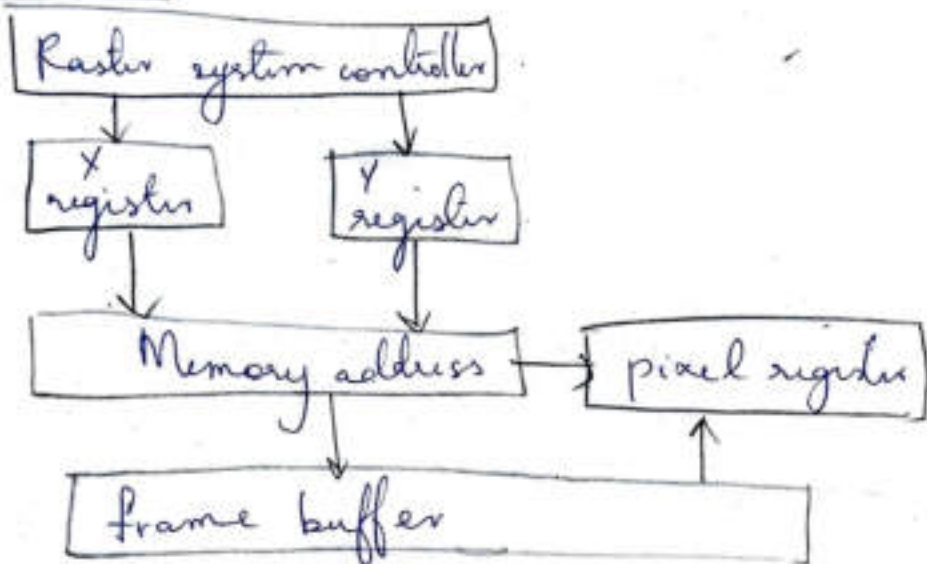 Raster system controller
X
register
Y
register
Memory address
pixel register
frame buffer